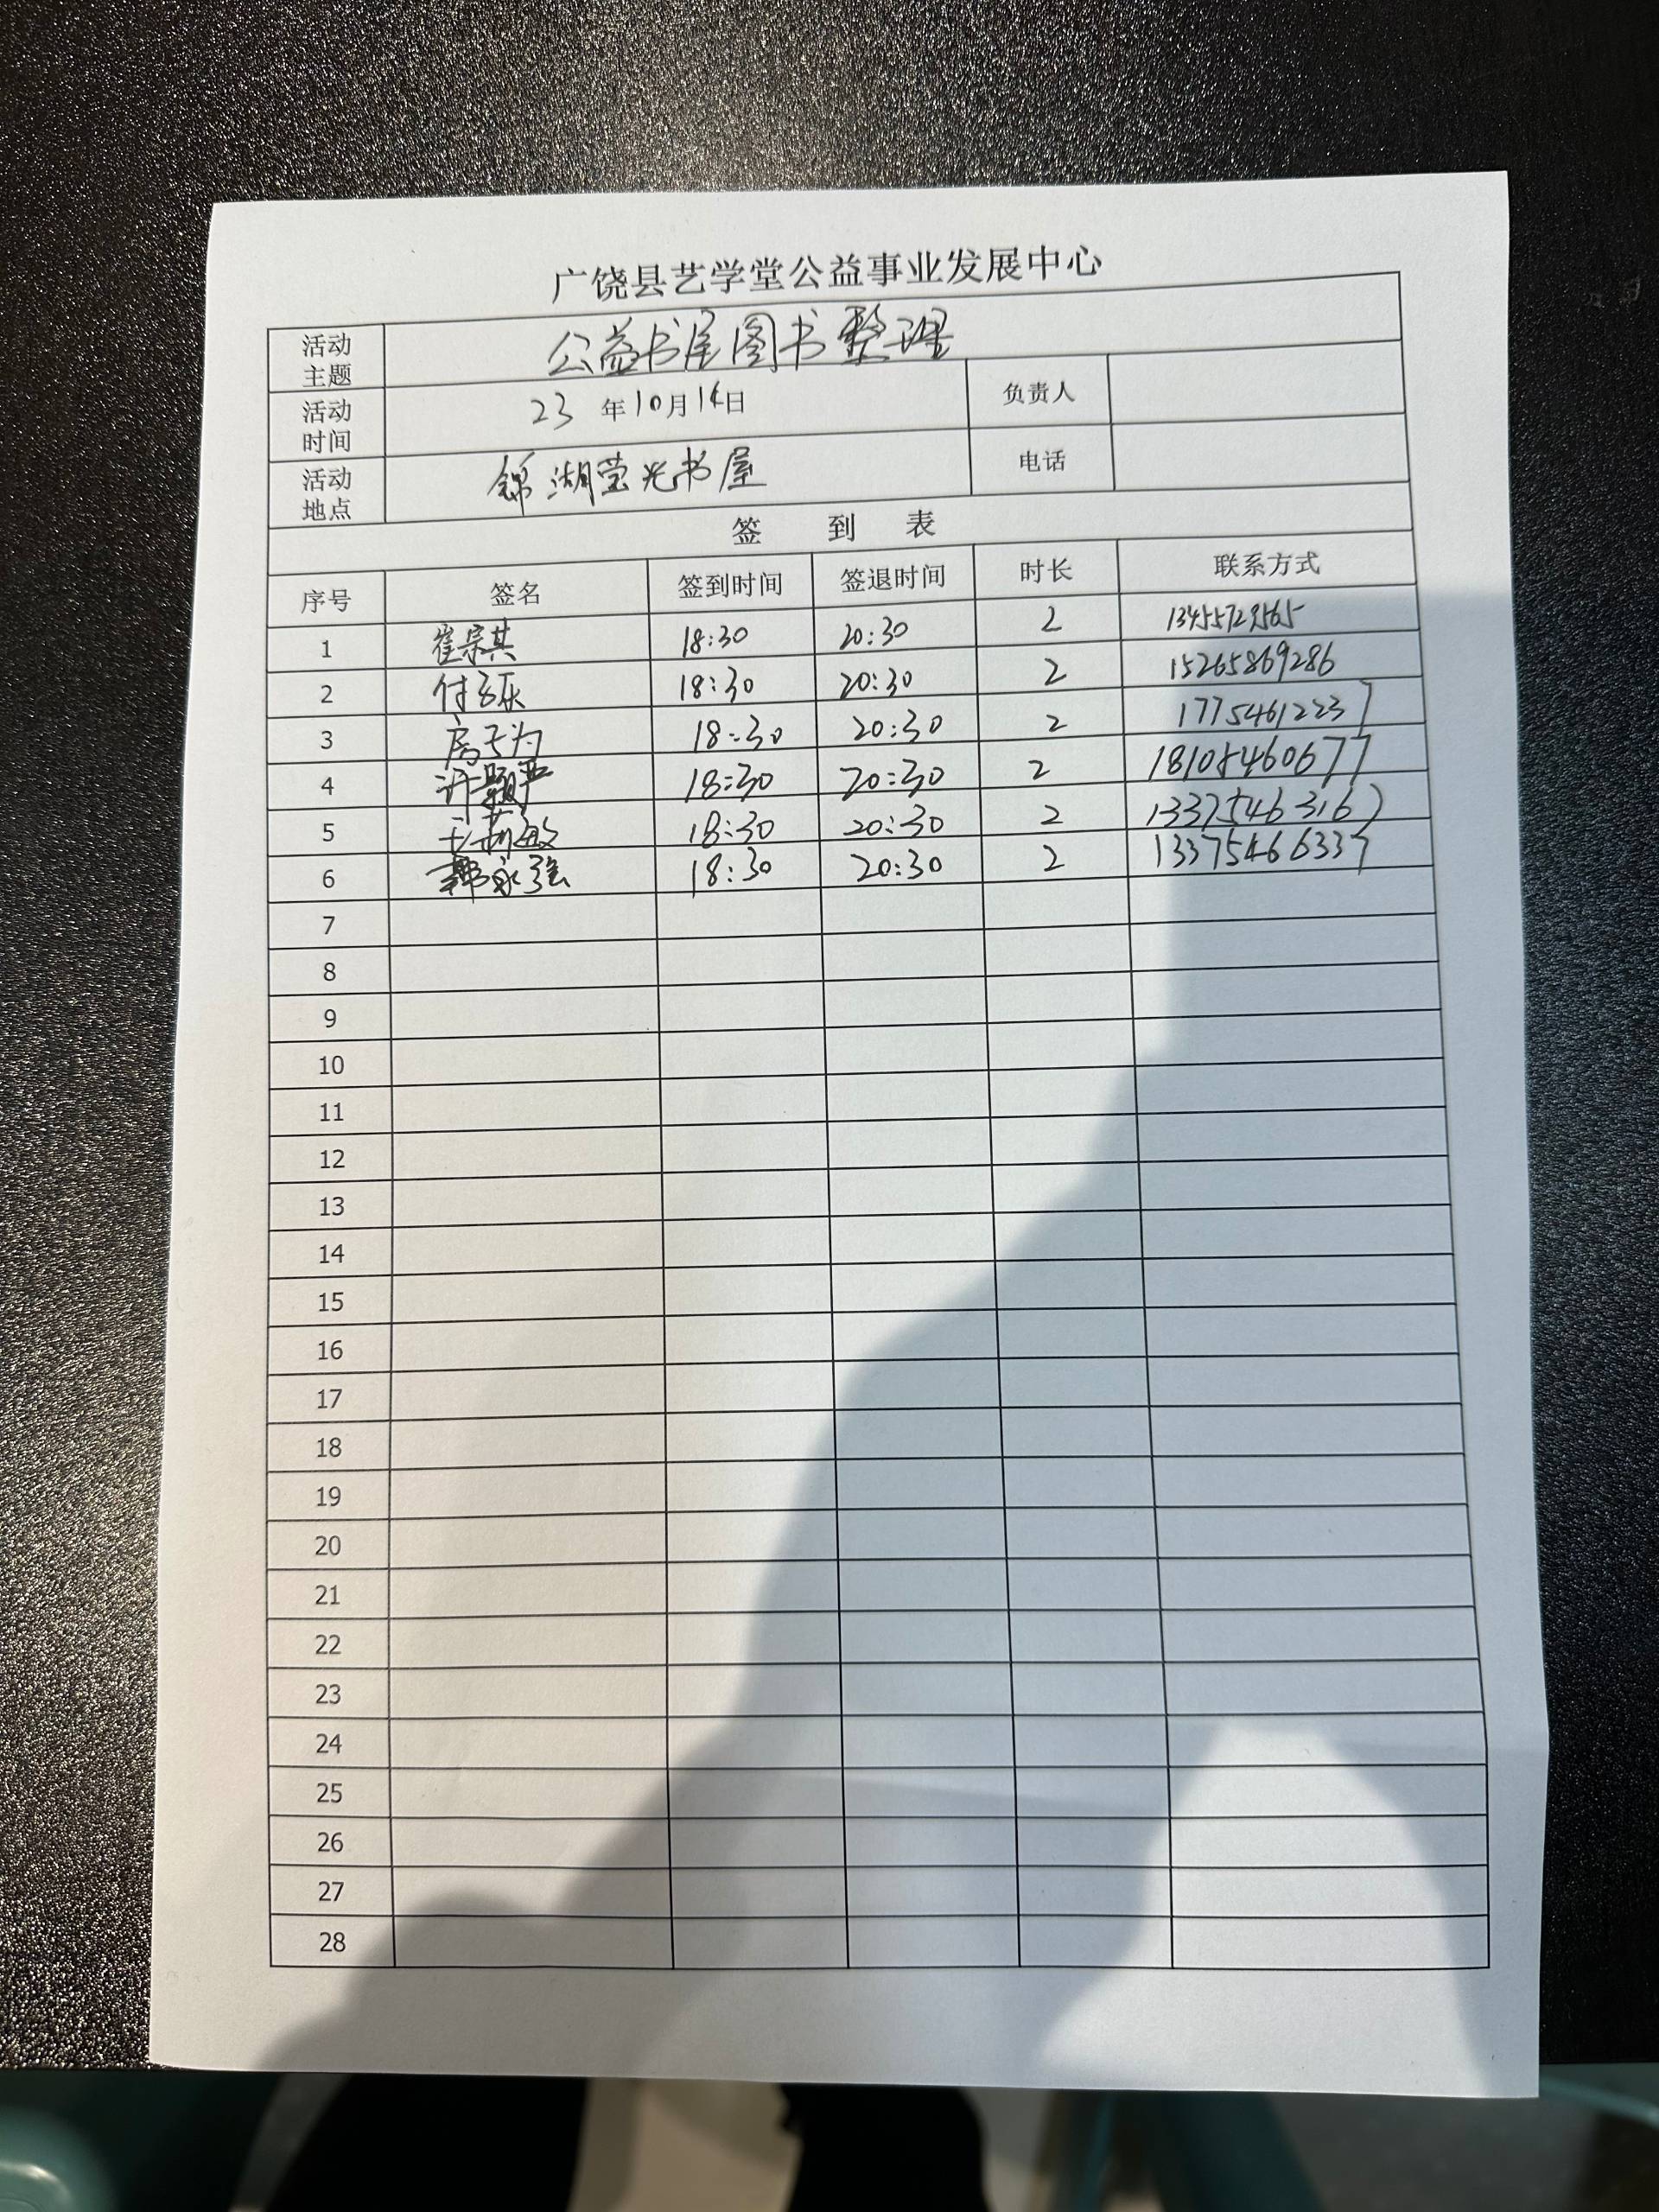 广饶县艺学堂公益事业发展中心
活动主题 公益书屋图书整理
活动时间 23 年10月14日 负责人
活动地点 锦湖萤光书屋 电话
签 到 表
序号 签名 签到时间 签退时间 时长 联系方式
1 崔宗其 18:30 20:30 2 13455729565
2 付 18:30 20:30 2 15265869286
3 房子为 18:30 20:30 2 17754612237
4 许颖 18:30 20:30 2 18105460677
5 王 敏 18:30 20:30 2 13375463167
6 韩永强 18:30 20:30 2 13375466337
7
8
9
10
11
12
13
14
15
16
17
18
19
20
21
22
23
24
25
26
27
28